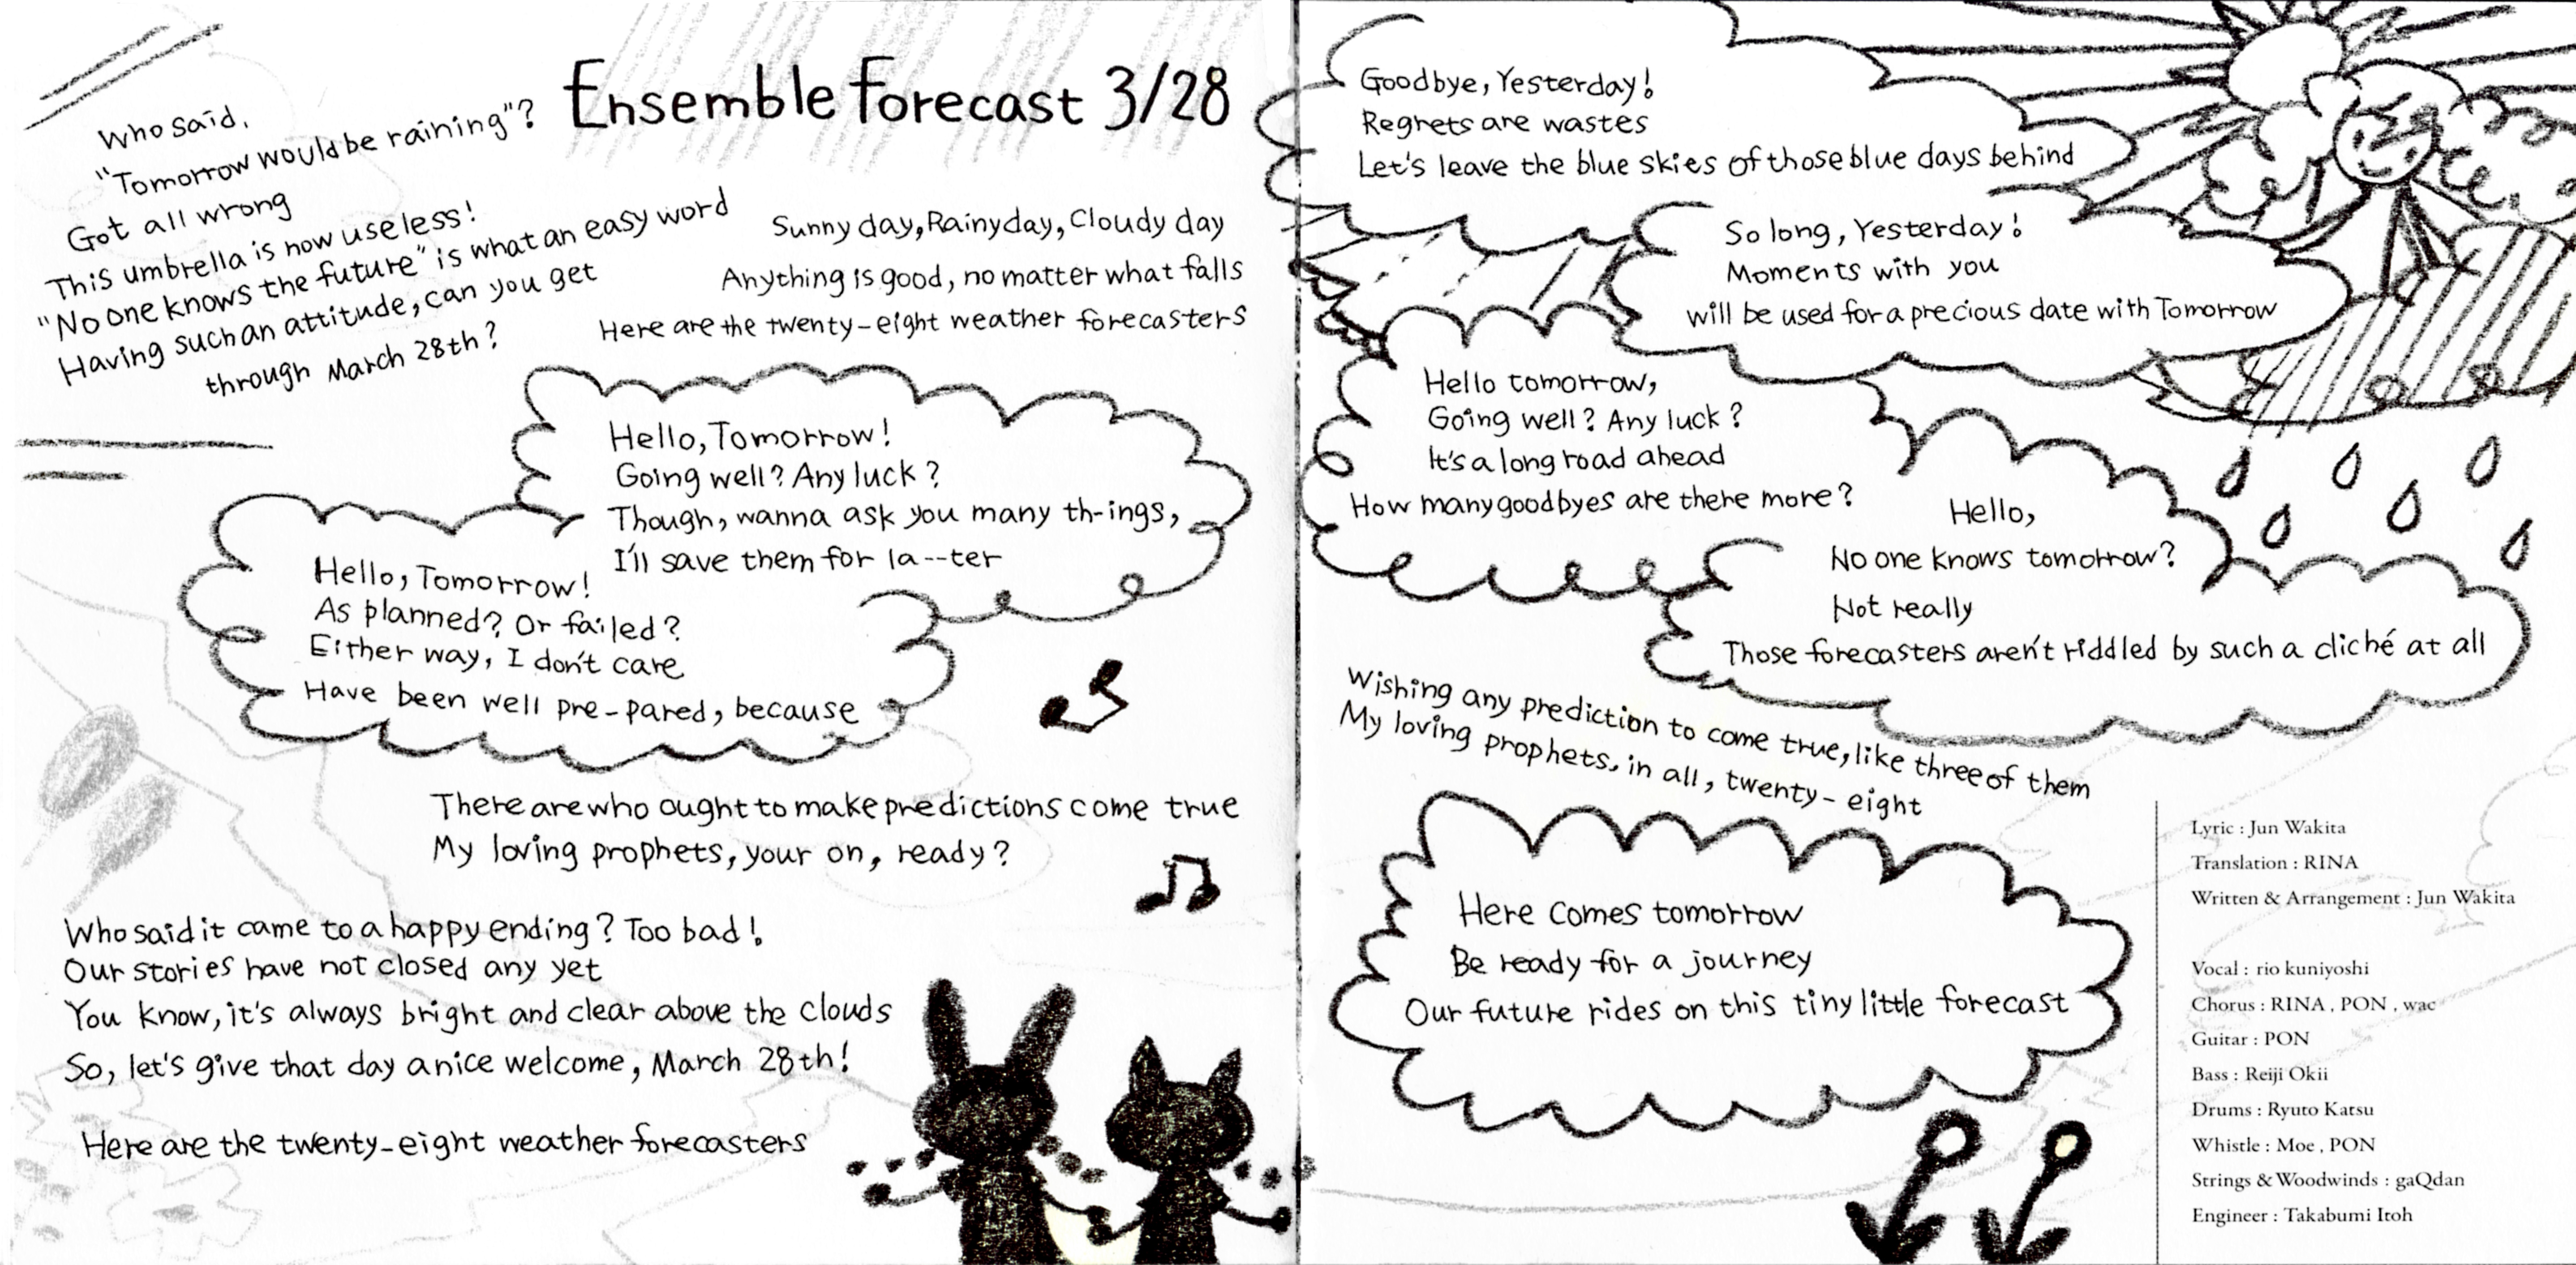 Ensemble forecast 3/28
Who said,
"Tomorrow would be raining"?
Got all wrong
This umbrella is now useless!
"No one knows the future" is what an easy word
Having such an attitude, can you get
through March 28th?
Sunny day, Rainy day, Cloudy day
Anything is good, no matter what falls
Here are the twenty-eight weather forecasters
Hello, Tomorrow!
Going well? Any luck?
Though, wanna ask you many th-ings,
I'll save them for la--ter
Hello, Tomorrow!
As planned? Or failed?
Either way, I don't care
Have been well pre-pared, because
There are who ought to make predictions come true
My loving prophets, your on, ready?
Who said it came to a happy ending? Too bad!
Our stories have not closed any yet
You know, it's always bright and clear above the clouds
So, let's give that day a nice welcome, March 28th!
Here are the twenty-eight weather forecasters
Goodbye, Yesterday!
Regrets are wastes
Let's leave the blue skies of those blue days behind
So long, Yesterday!
Moments with you
will be used for a precious date with Tomorrow
Hello tomorrow,
Going well? Any luck?
It's a long road ahead
How many goodbyes are there more?
Hello,
No one knows tomorrow?
Not really
Those forecasters aren't riddled by such a cliché at all
Wishing any prediction to come true, like three of them
My loving prophets, in all, twenty-eight
Here comes tomorrow
Be ready for a journey
Our future rides on this tiny little forecast
Lyric : Jun Wakita
Translation : RINA
Written & Arrangement : Jun Wakita
Vocal : rio kuniyoshi
Chorus : RINA , PON , wac
Guitar : PON
Bass : Reiji Okii
Drums : Ryuto Katsu
Whistle : Moe , PON
Strings & Woodwinds : gaQdan
Engineer : Takabumi Itoh